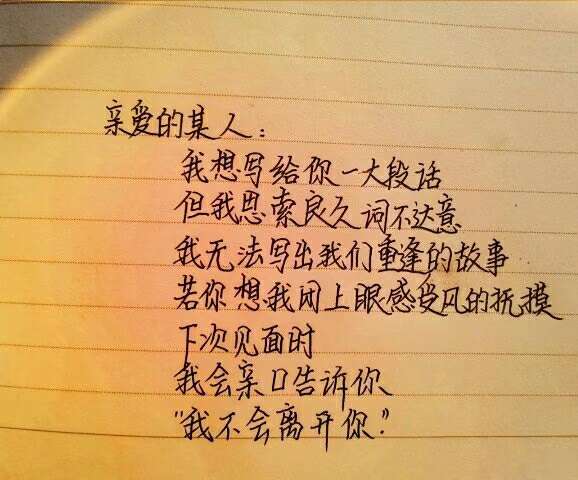 亲爱的某人：
我想写给你一大段话
但我思索良久词不达意
我无法写出我们重逢的故事
若你想我闭上眼感受风的抚摸
下次见面时
我会亲口告诉你
"我不会离开你."